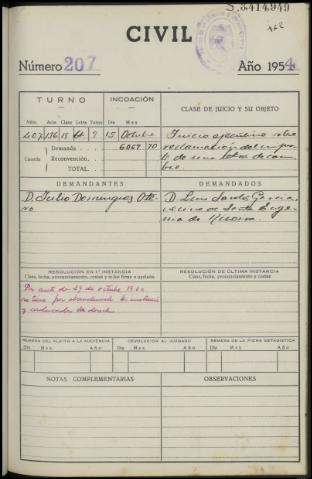 S. 3414949
162
CIVIL
Número 207 Año 1954
TURNO INCOACIÓN CLASE DE JUICIO Y SU OBJETO
Núm. Año Clase Letra Turno Día Mes
15 Octubre Juicio ejecutivo sobre
Demanda 6067 70 reclamación del importe
Cuantía Reconvención de una letra de cambio
TOTAL
DEMANDANTES DEMANDADOS
D. Julio Dominguez Otero D. Luis García
RESOLUCIÓN EN 1.ª INSTANCIA RESOLUCIÓN DE ÚLTIMA INSTANCIA
Clase, fecha, pronunciamiento, costas y si fué firme o apelada Clase, fecha, pronunciamiento y costas
Por auto de 29 de octubre 1960
se tiene por abandonada la instancia
y caducada de derecho
REMESA DEL PLEITO A LA AUDIENCIA DEVOLUCIÓN AL JUZGADO REMESA DE LA FICHA ESTADÍSTICA
Día Mes Año Día Mes Año Día Mes Año
NOTAS COMPLEMENTARIAS OBSERVACIONES